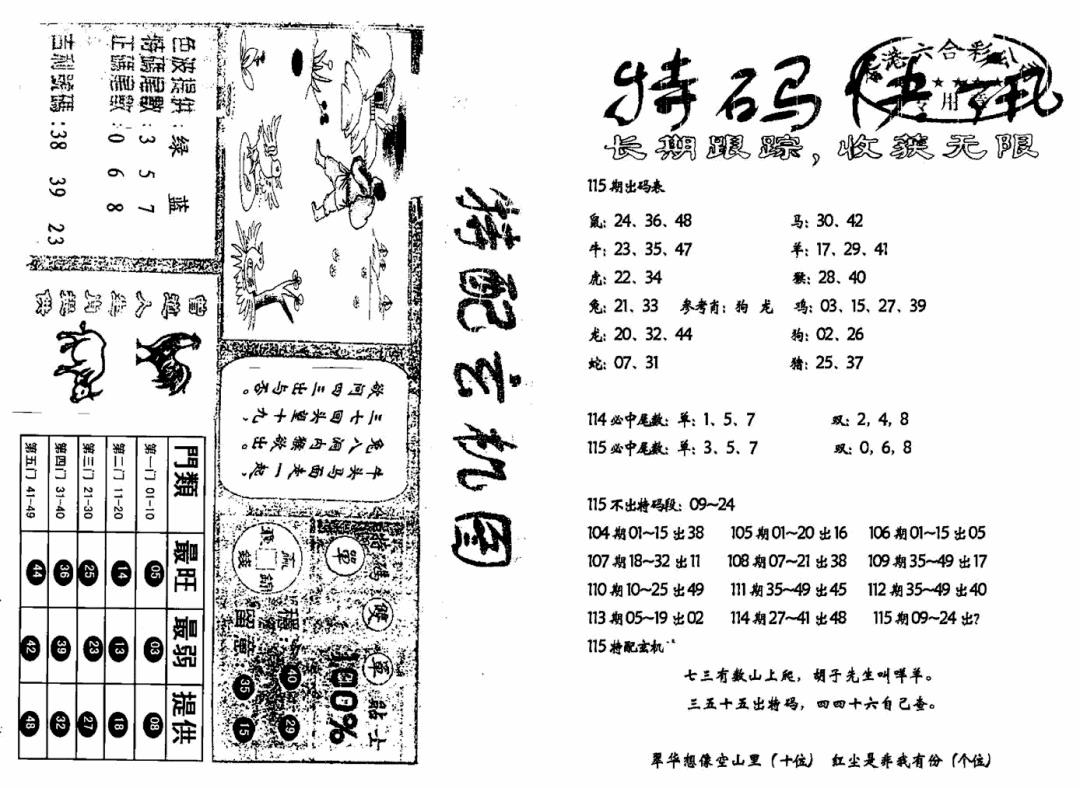 特码快讯
香港六合彩公司
专用章
长期跟踪，收获无限
115期出码表
鼠：24、36、48
马：30、42
牛：23、35、47
羊：17、29、41
虎：22、34
猴：28、40
兔：21、33 参考肖：狗 龙
鸡：03、15、27、39
龙：20、32、44
狗：02、26
蛇：07、31
猪：25、37
114必中尾数：单：1、5、7
双：2、4、8
115必中尾数：单：3、5、7
双：0、6、8
115不出特码段：09～24
104期01～15出38 105期01～20出16 106期01～15出05
107期18～32出11 108期07～21出38 109期35～49出17
110期10～25出49 111期35～49出45 112期35～49出40
113期05～19出02 114期27～41出48 115期09～24出?
115特配玄机
七三有数山上爬，胡子先生叫咩羊。
三五十五出特码，四四十六自己查。
翠华想像空山里（十位） 红尘是非我有份（个位）
特配玄机图
色波提供：绿 蓝
特碼尾數：3 5 7
正碼尾數：0 6 8
吉利號碼：38 39 23
牛头马面走一起，
兔入洞内猴放出。
三七回头望十九，
欲问四三出与否。
門類 最旺 最弱 提供
第一门 01-10 05 03 08
第二门 11-20 14 13 18
第三门 21-30 25 23 27
第四门 31-40 36 39 32
第五门 41-49 44 42 48
特碼
單
雙
單
貼士
100%
赢
錢
穩
留意：
40 29
35 15